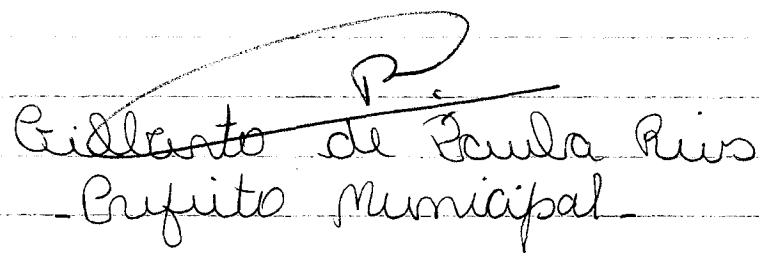 Gilberto de Paula Reis
- Prefeito Municipal -